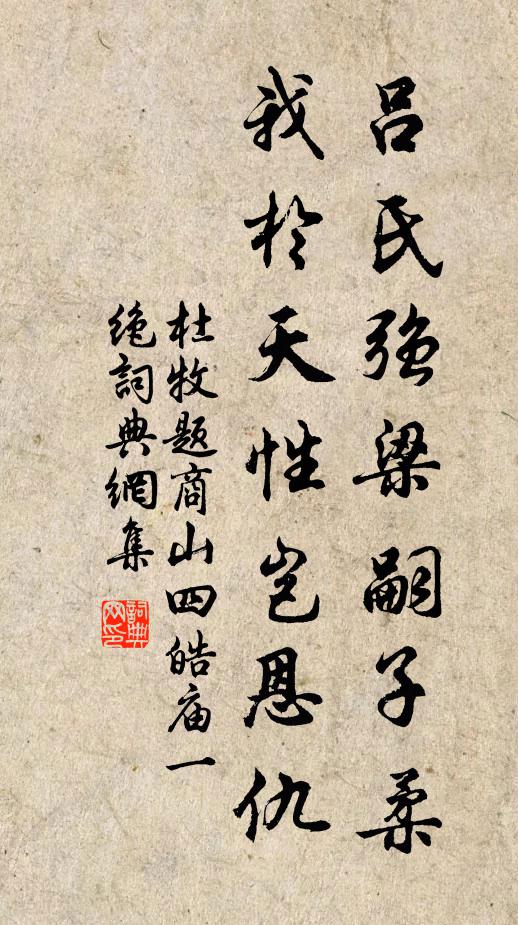 吕氏强梁嗣子柔
我於天性岂恩仇
杜牧题商山四皓庙一
绝词典網集
詞典网印